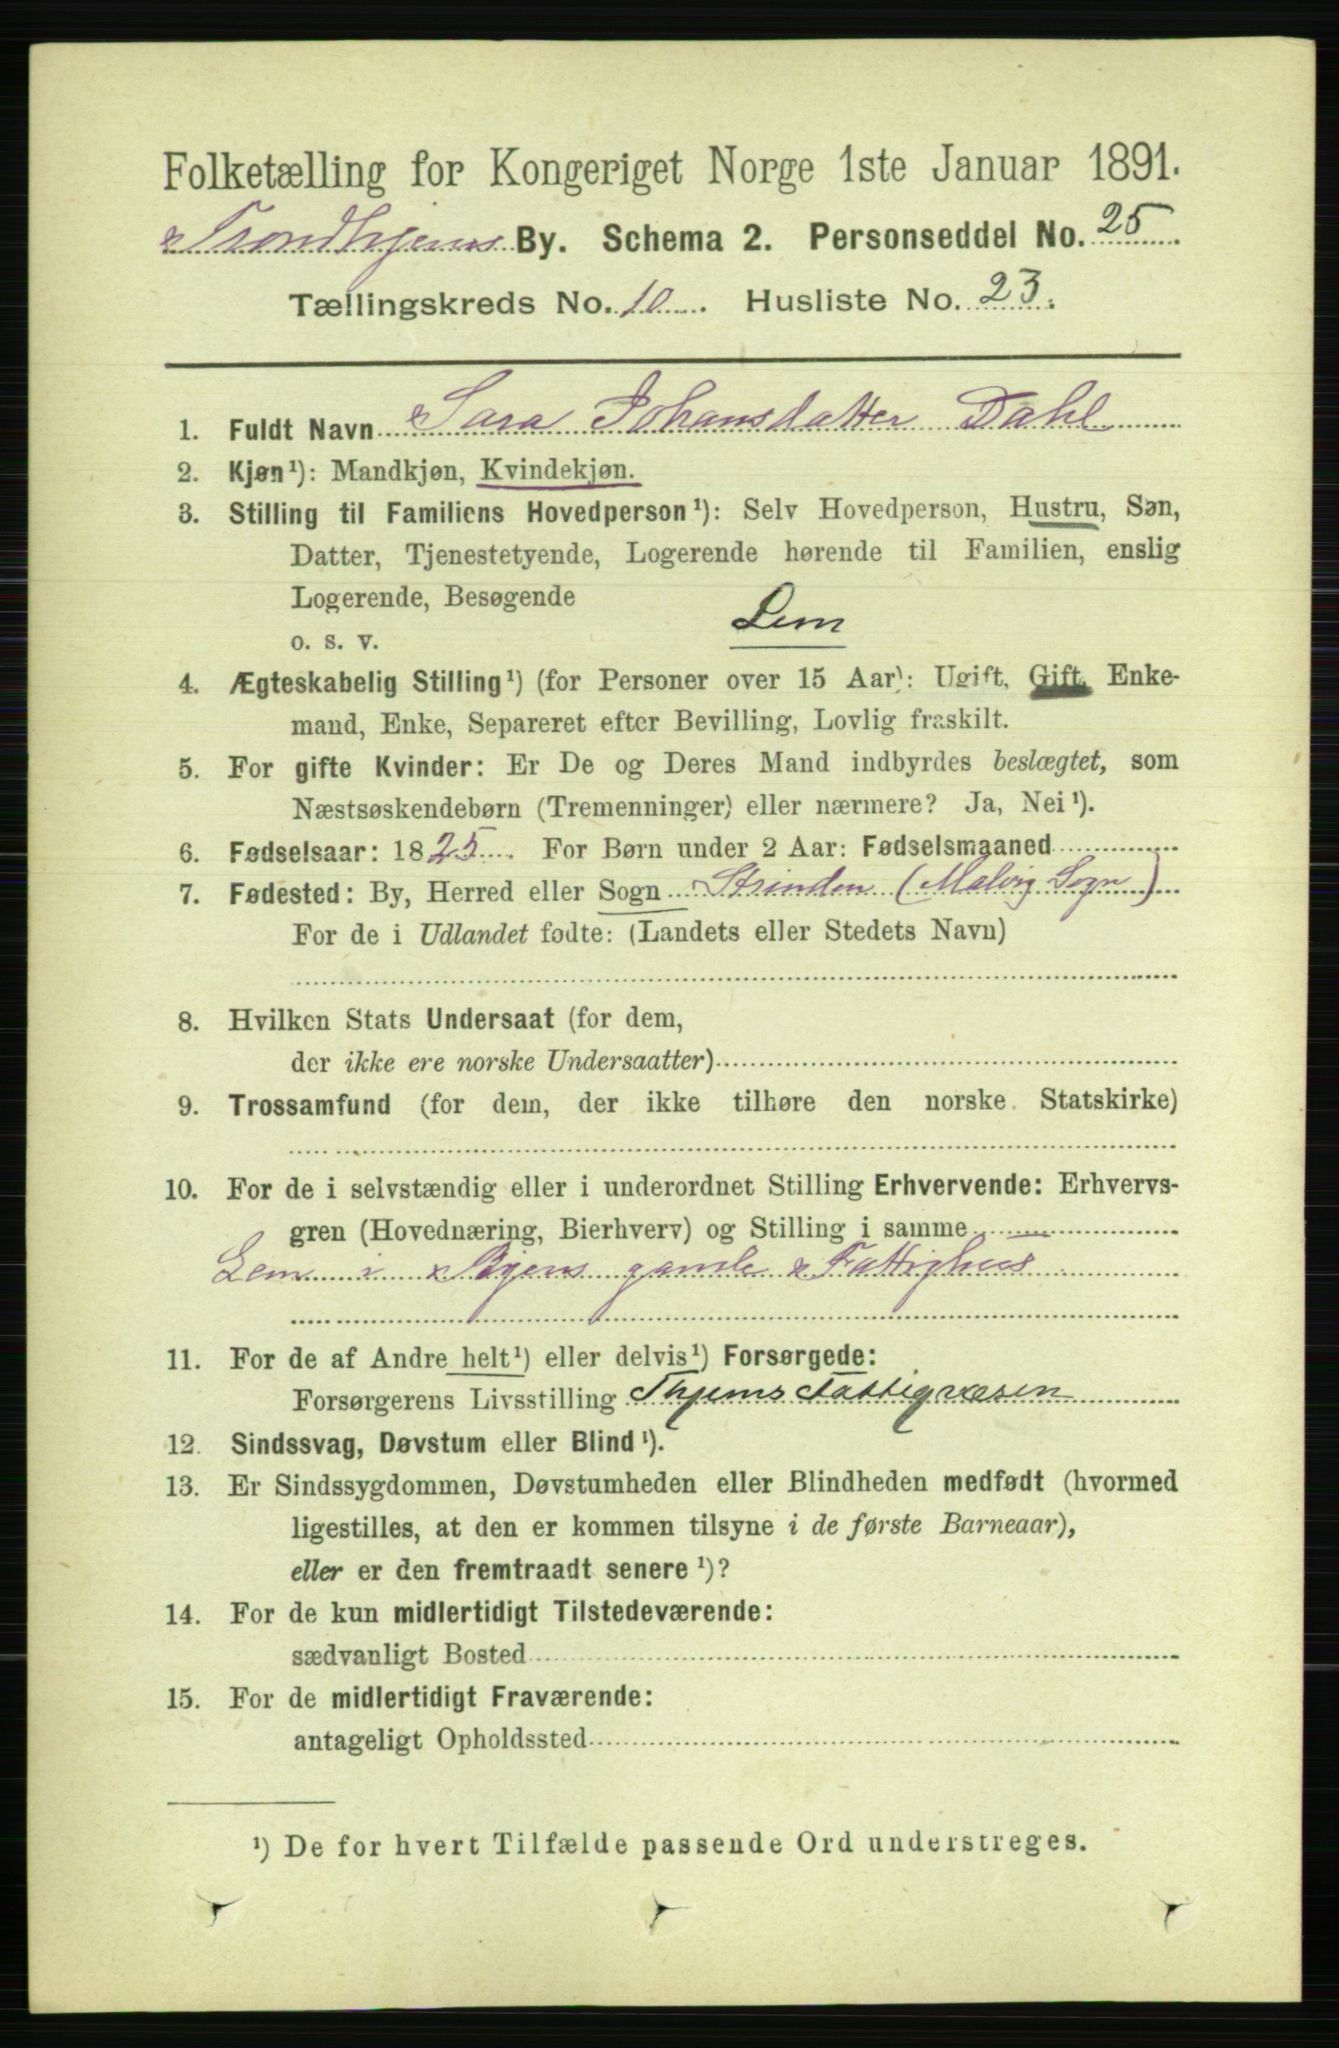 Folketælling for Kongeriget Norge 1ste Januar 1891.
Trondhjems By. Schema 2. Personseddel No. 25
Tællingskreds No. 10 Husliste No. 23.
1. Fuldt Navn Sara Johansdatter Dahl
2. Kjøn¹): Mandkjøn, Kvindekjøn.
3. Stilling til Familiens Hovedperson¹): Selv Hovedperson, Hustru, Søn,
Datter, Tjenestetyende, Logerende hørende til Familien, enslig
Logerende, Besøgende
o. s. v. Lem
4. Ægteskabelig Stilling¹) (for Personer over 15 Aar): Ugift, Gift, Enke-
mand, Enke, Separeret efter Bevilling, Lovlig fraskilt.
5. For gifte Kvinder: Er De og Deres Mand indbyrdes beslægtet, som
Næstsøskendebørn (Tremenninger) eller nærmere? Ja, Nei¹).
6. Fødselsaar: 1825. For Børn under 2 Aar: Fødselsmaaned
7. Fødested: By, Herred eller Sogn Strinden (Malvig Sogn)
For de i Udlandet fødte: (Landets eller Stedets Navn)
8. Hvilken Stats Undersaat (for dem,
der ikke ere norske Undersaatter)
9. Trossamfund (for dem, der ikke tilhøre den norske Statskirke)
10. For de i selvstændig eller i underordnet Stilling Erhvervende: Erhvervs-
gren (Hovednæring, Bierhverv) og Stilling i samme
Lem i Byens gamle Fattighus
11. For de af Andre helt¹) eller delvis¹) Forsørgede:
Forsørgerens Livsstilling Thjems Fattigvæsen
12. Sindssvag, Døvstum eller Blind¹).
13. Er Sindssygdommen, Døvstumheden eller Blindheden medfødt (hvormed
ligestilles, at den er kommen tilsyne i de første Barneaar),
eller er den fremtraadt senere¹)?
14. For de kun midlertidigt Tilstedeværende:
sædvanligt Bosted
15. For de midlertidigt Fraværende:
antageligt Opholdssted
¹) De for hvert Tilfælde passende Ord understreges.